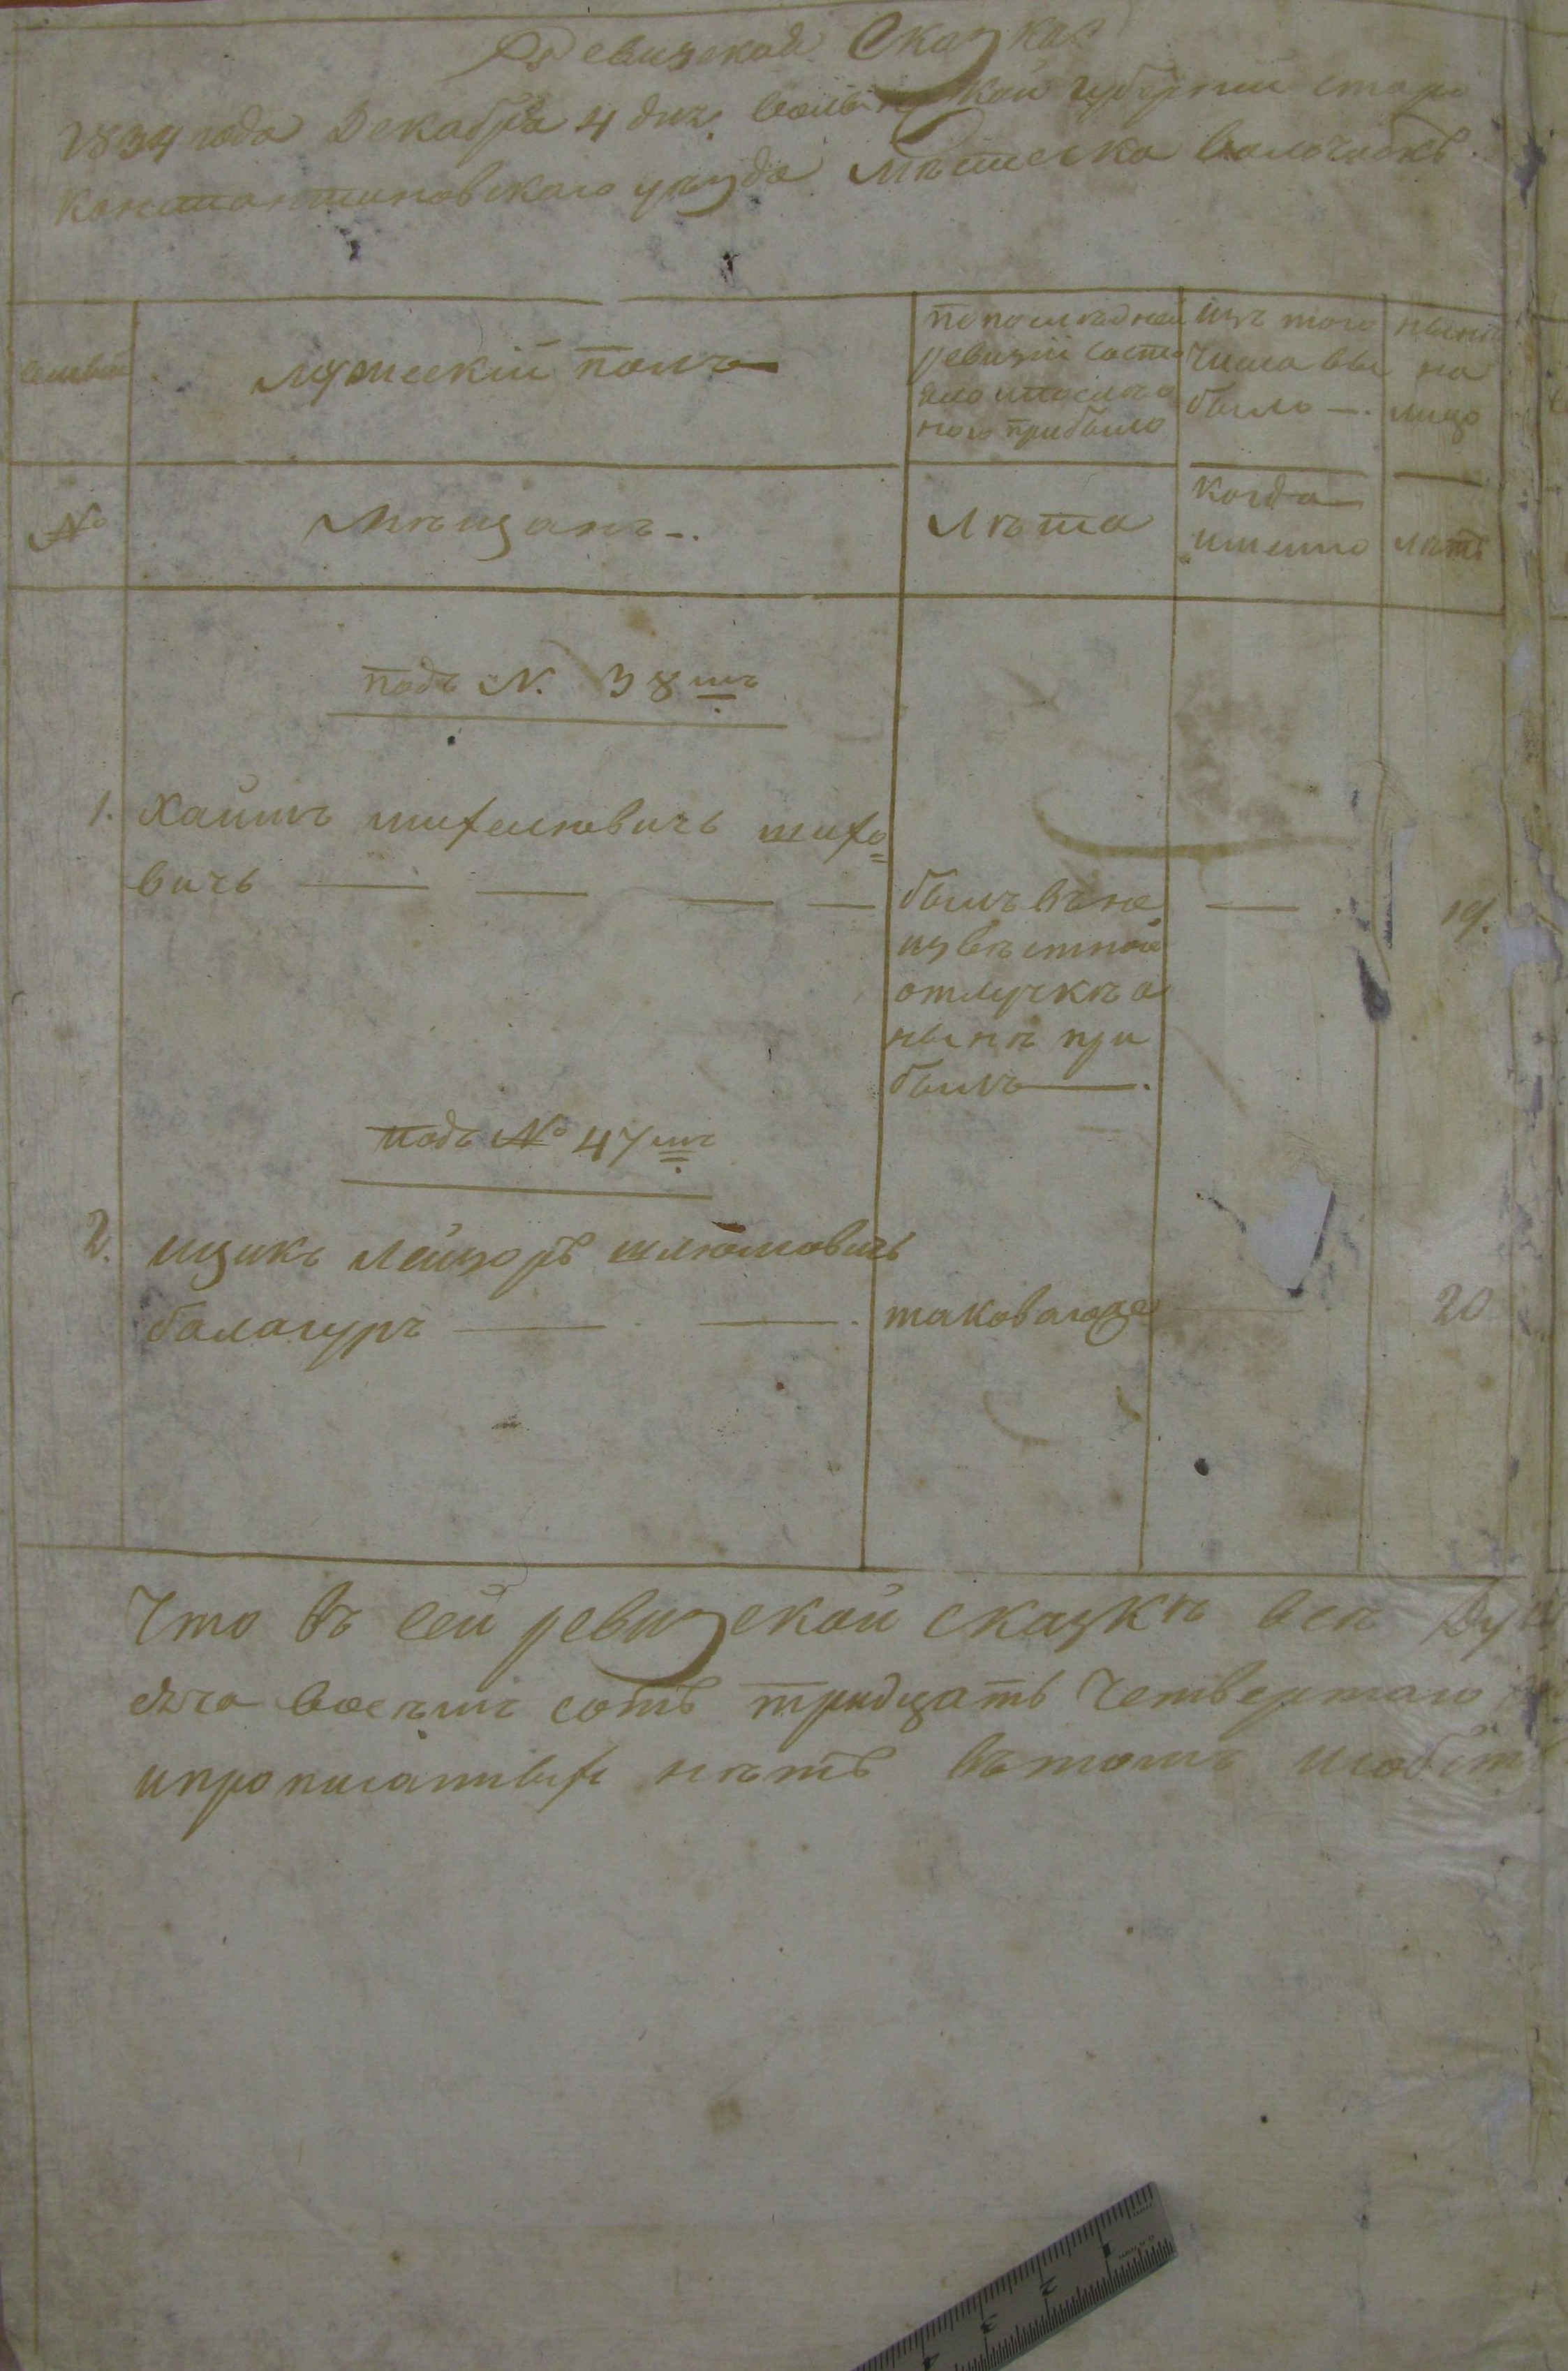 Ревизская Сказка
1834 года Декабря 4 дня волынской губернии старо
константиновского уѣзда Мѣстечка волочискъ
мужескій полъ
по последней
ревизіи состо
яло и после о
ного прибыло
изъ того
числа вы
было —.
нынѣ
на
лицо
№
Мѣщанъ —.
Лѣта
когда
именно
лѣтъ
подъ N. 38мъ
1. Хаимъ михелювичъ михо
вичъ — — — —
былъ въ не
извѣстной
отлучкѣ а
нынѣ при
былъ —.
—
19.
подъ № 47мъ
2. ицикъ Лейзоръ шлюмовичъ
балагуръ — —. таковагоже — 20
Что въ сей ревизской сказкѣ всѣ
сяча восемъ сотъ тридцать Четвертаго
и прописатныхъ нѣтъ въ томъ